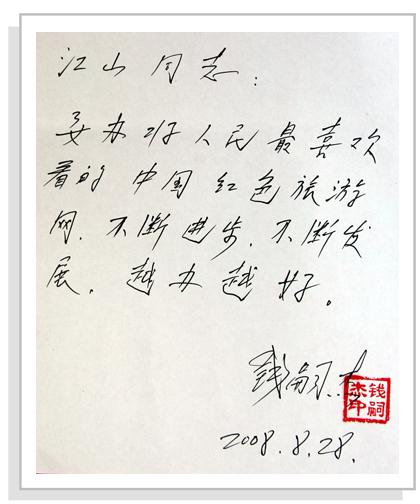 江山同志：
要办好人民最喜欢
看的中国红色旅游
网，不断进步，不断发
展，越办越好。
钱嗣杰
钱嗣杰印
2008.8.28.